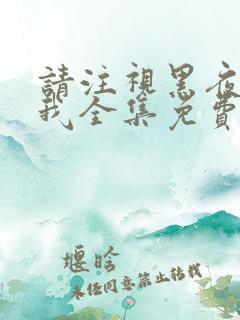 請注視黑夜
我全集免費
堰晗
未任同意禁止轉載